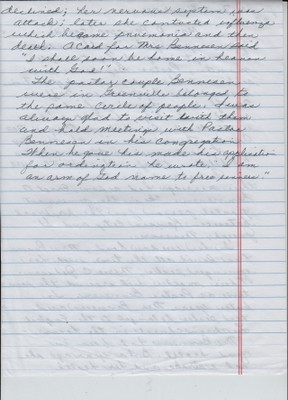 declined; her nervous system was
attack; later she contracted influenza
which became pneumonia and then
death. A card for Mrs Bennesen said
"I shall soon be home in heaven
with God!"
The pastor couple Bennesen
were in Greenville belonged to
the same circle of people. I was
always glad to visit with them
and hold meetings with Pastor
Bennesen in his congregation
When he gave his made his application
for ordination he wrote "I am
an arm of God name to free